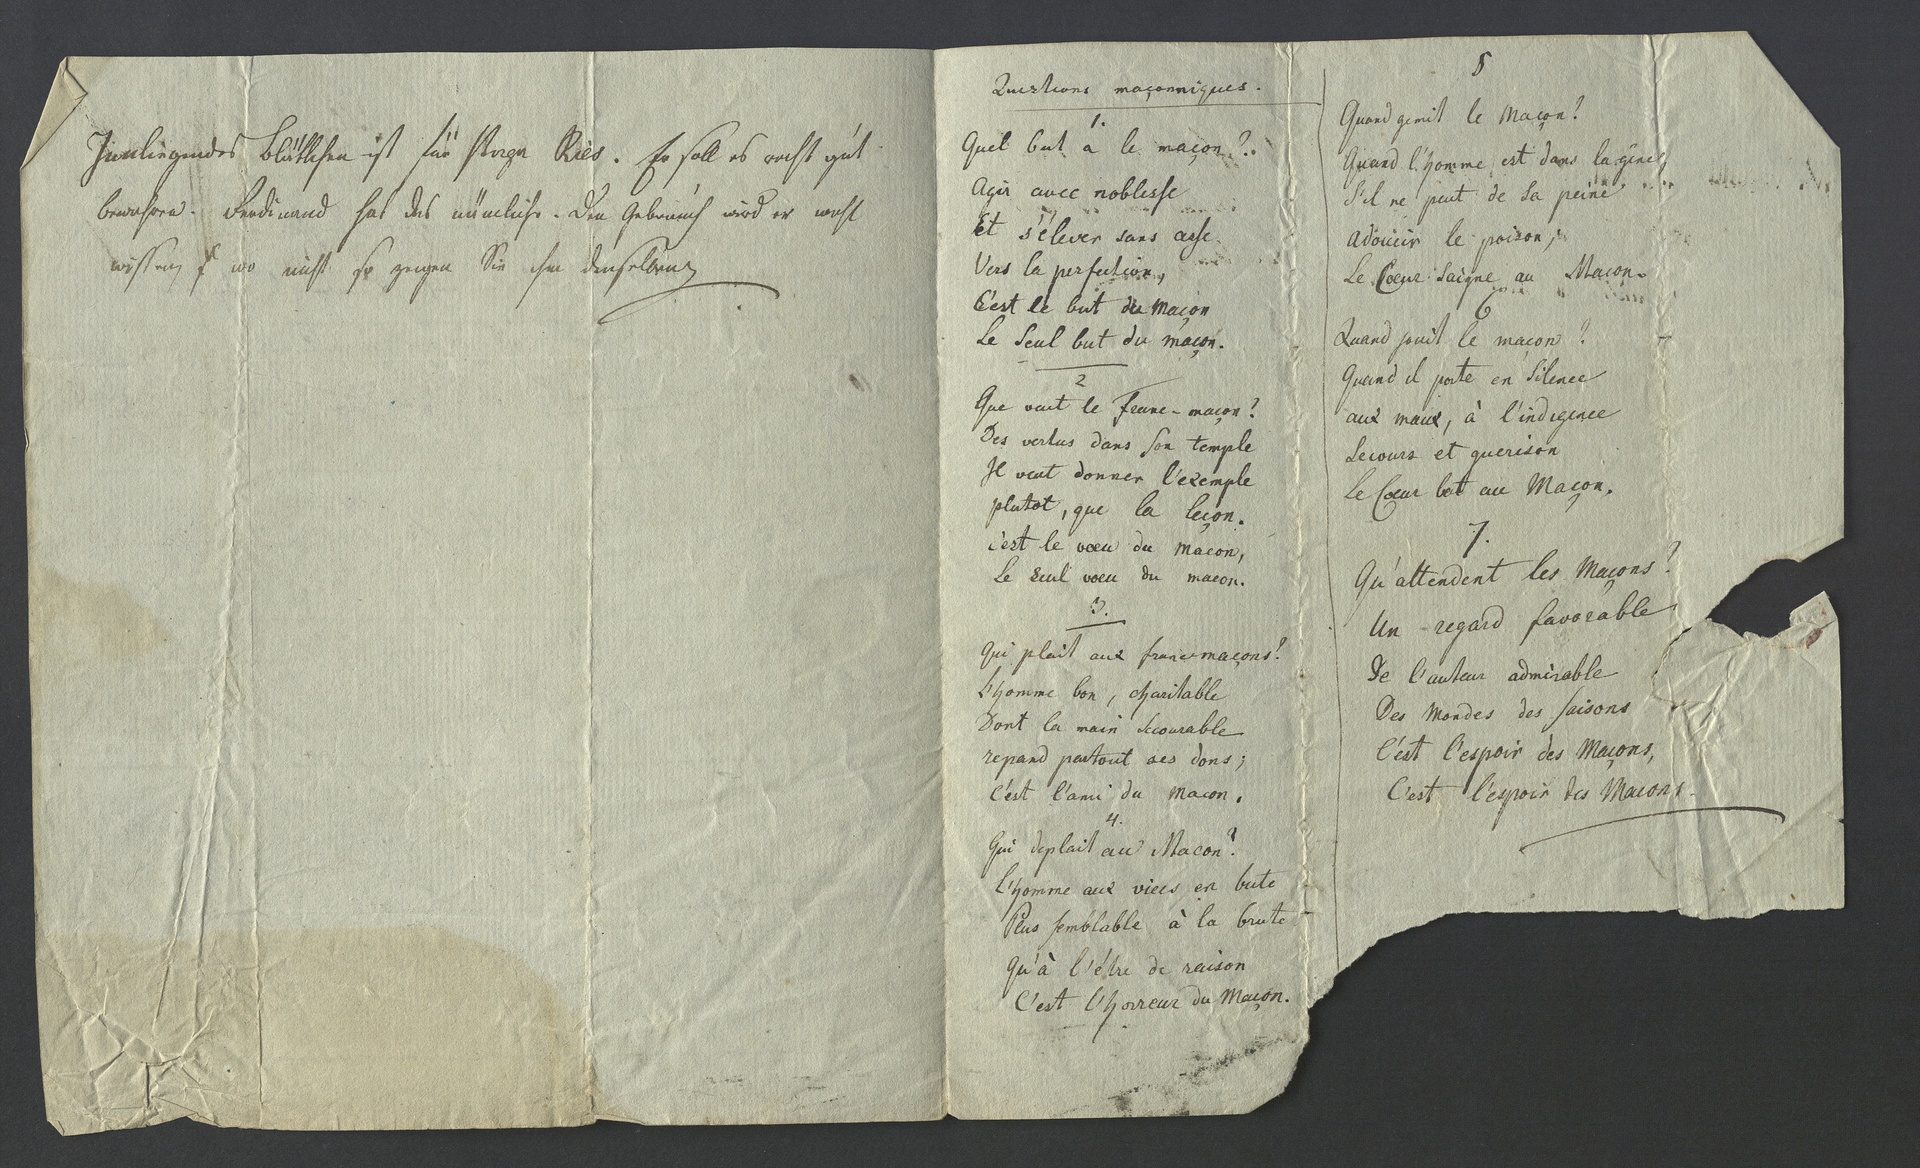 Innliegendes Blättchen ist für Ries. Er soll es recht gut
bewahren. Ferdinand hat das nämliche. Den Gebrauch wird er wohl
wissen, wo nicht so zeigen Sie ihm denselben
Questions maçonniques.
1.
Quel but a le maçon?
Agir avec noblesse
Et s'élever sans cesse
Vers la perfection,
C'est le but du Maçon
Le Seul but du maçon.
2
Que veut le Franc-maçon?
Des vertus dans son temple
Il veut donner l'exemple
plutot, que la leçon.
c'est le voeu du macon,
Le seul voeu du macon.
3.
Qui plait aux francmaçons?
L'homme bon, charitable
Dont la main secourable
repand partout ses dons;
C'est l'ami du macon.
4.
Qui deplait au Macon?
L'homme aux vices en bute
Plus semblable à la brute
Qu'à l'être de raison
C'est l'horreur du Maçon.
5
Quand gemit le Maçon?
Quand l'homme est dans la gène,
S'il ne peut de sa peine
adoucir le poison;
Le Coeur saigne au Macon.
6
Quand jouit le macon?
Quand il porte en silence
aux maux, à l'indigence
secours et guerison
Le Coeur bat au Maçon.
7.
Qu'attendent les Maçons?
Un regard favorable
De l'auteur admirable
Des Mondes des saisons
C'est l'espoir des Maçons,
C'est l'espoir des Macons.